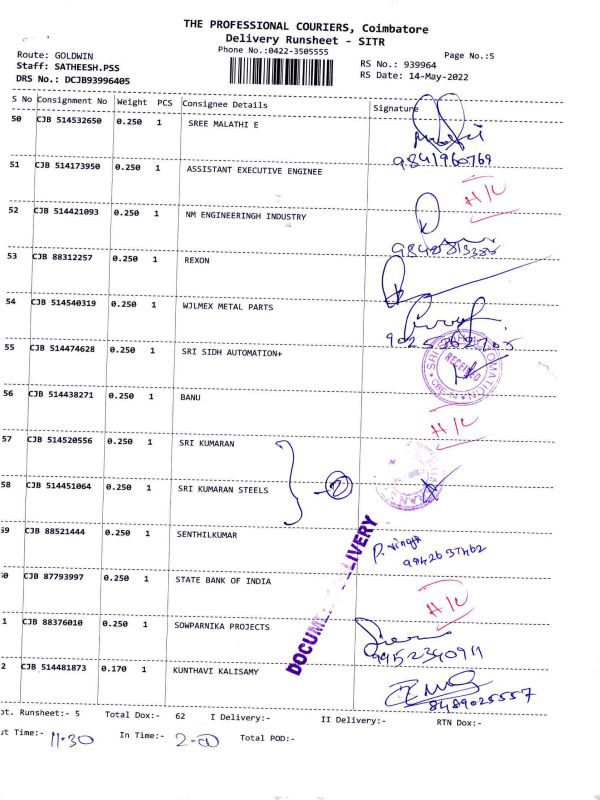 THE PROFESSIONAL COURIERS, Coimbatore
Delivery Runsheet - SITR
Phone No.:0422-3505555
Page No.:5
Route: GOLDWIN
Staff: SATHEESH.PSS
DRS No.: DCJB93996405
RS No.: 939964
RS Date: 14-May-2022
S No Consignment No Weight PCS Consignee Details Signature
50 CJB 514532650 0.250 1 SREE MALATHI E
9841960769
51 CJB 514173950 0.250 1 ASSISTANT EXECUTIVE ENGINEE
H/C
52 CJB 514421093 0.250 1 NM ENGINEERINGH INDUSTRY
53 CJB 88312257 0.250 1 REXON
54 CJB 514540319 0.250 1 WJLMEX METAL PARTS
55 CJB 514474628 0.250 1 SRI SIDH AUTOMATION+
RECEIVED
56 CJB 514438271 0.250 1 BANU
H/C
57 CJB 514520556 0.250 1 SRI KUMARAN
2
58 CJB 514451064 0.250 1 SRI KUMARAN STEELS
59 CJB 88521444 0.250 1 SENTHILKUMAR
9942637462
0 CJB 87793997 0.250 1 STATE BANK OF INDIA
H/C
1 CJB 88376010 0.250 1 SOWPARNIKA PROJECTS
9952340911
2 CJB 514481873 0.170 1 KUNTHAVI KALISAMY
8489025557
ot. Runsheet:- 5 Total Dox:- 62 I Delivery:- II Delivery:- RTN Dox:-
ut Time:- 11.30 In Time:- Total POD:-